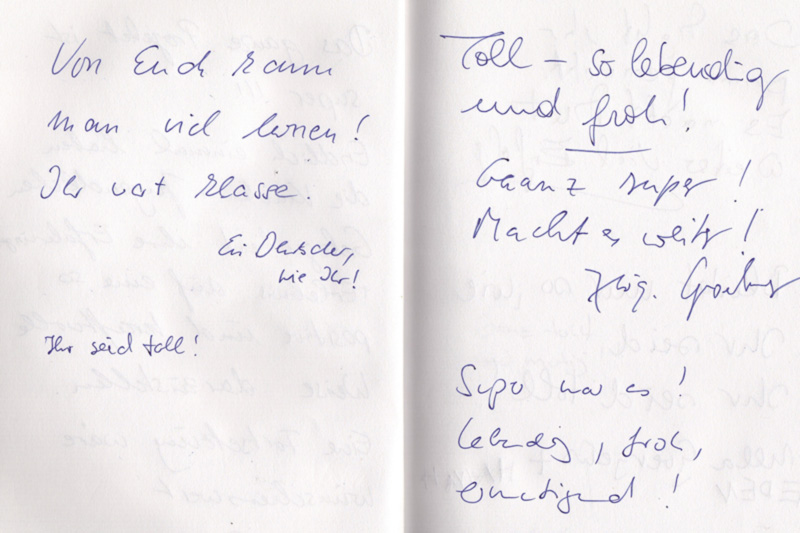 Von Euch kann
man viel lernen!
Ihr wart klasse.
Ein Deutscher,
wie Ihr!
Ihr seid toll!
Toll – so lebendig
und froh!
Gaanz super!
Macht es weiter!
Super war es!
lebendig, froh,
ermutigend!